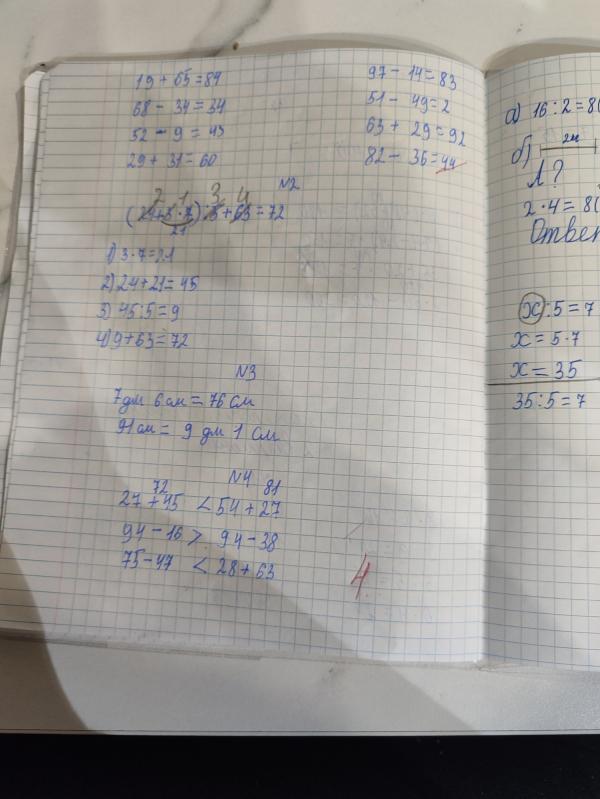 19 + 65 = 84
68 - 34 = 34
52 - 9 = 43
29 + 31 = 60
97 - 14 = 83
51 - 49 = 2
63 + 29 = 92
82 - 36 = 44
N2
2 1 3 4
(24+3·7):5+63=72
21
1) 3·7=21
2) 24+21=45
3) 45:5=9
4) 9+63=72
N3
7 дм 6 см = 76 см
91 см = 9 дм 1 см
N4
72 81
27 + 45 < 54 + 27
94 - 16 > 94 - 38
75 - 47 < 28 + 63
4
а) 16:2=8(
б) 2м
2·4=8(
Ответ
x:5=7
x=5·7
x=35
35:5=7